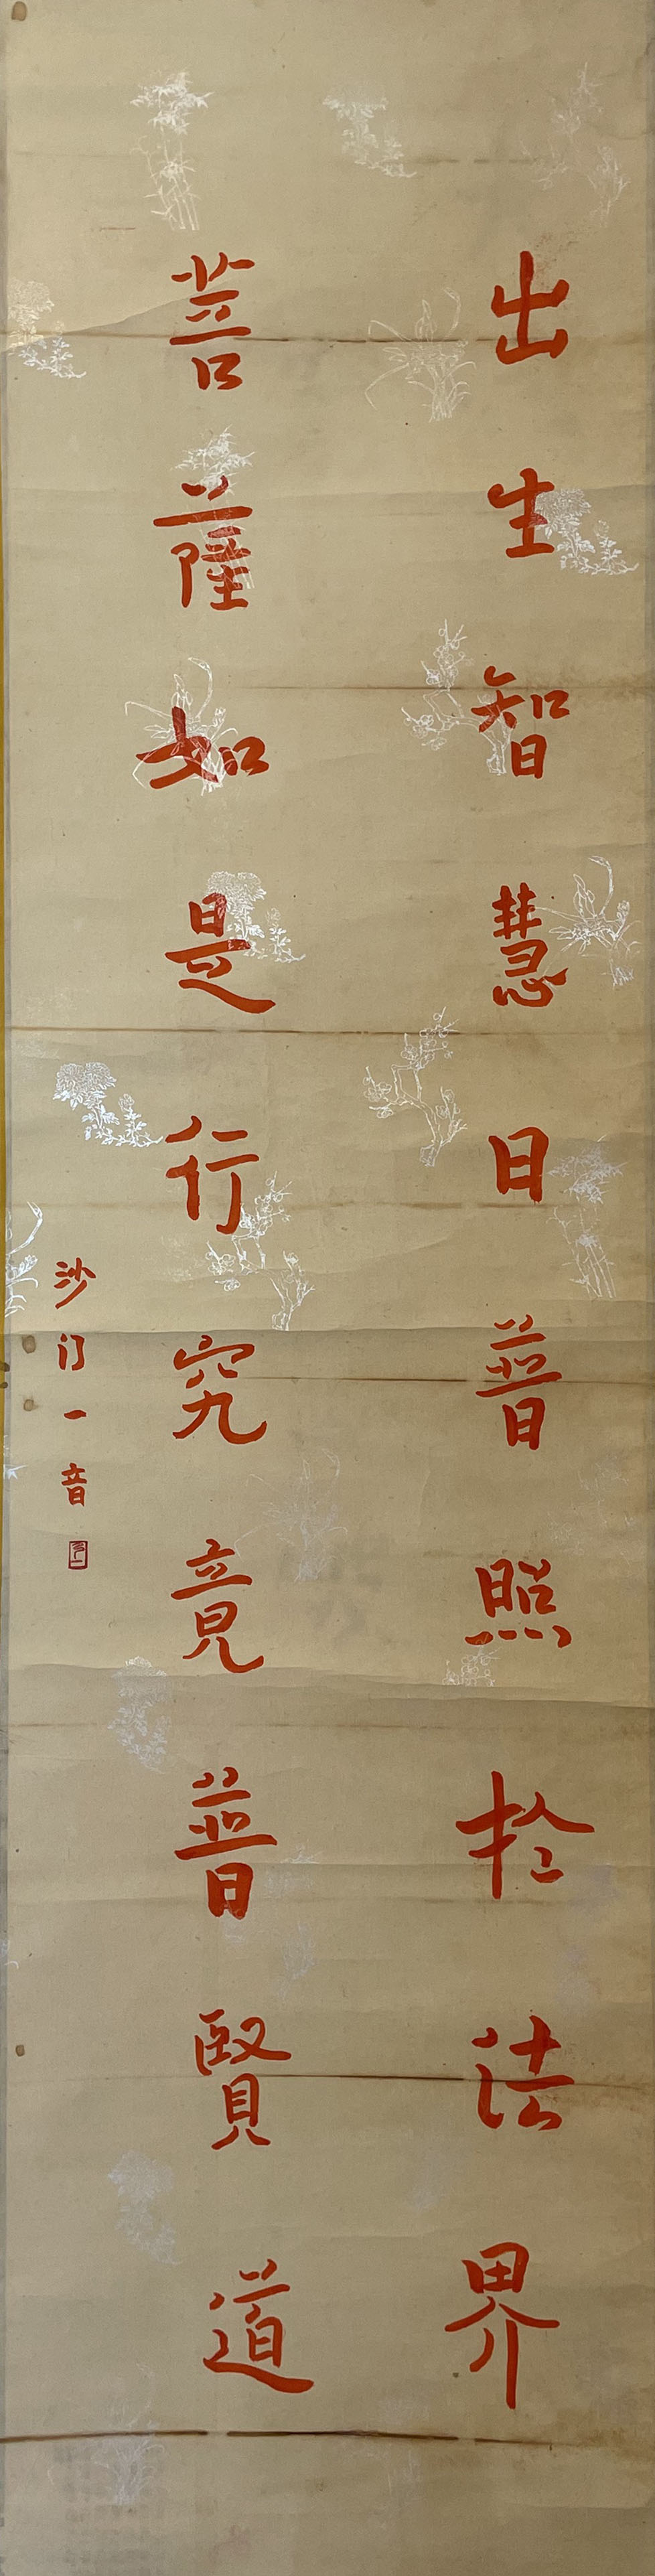 出生智慧日普照於法界
菩薩如是行究竟普賢道
沙门一音